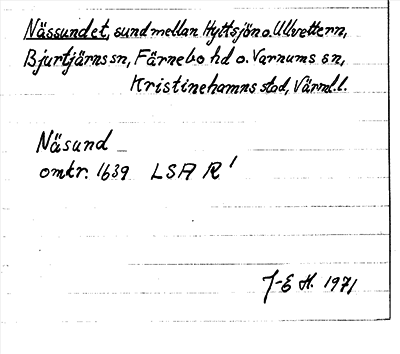 Nässundet, sund mellan Hyttsjön o. Ullvettern,
Bjurtjärns sn, Färnebo hd o. Varnums sn,
Kristinehamns stad, Värml. l.
Näsund
omkr. 1639 LSA R¹
J-E H. 1971